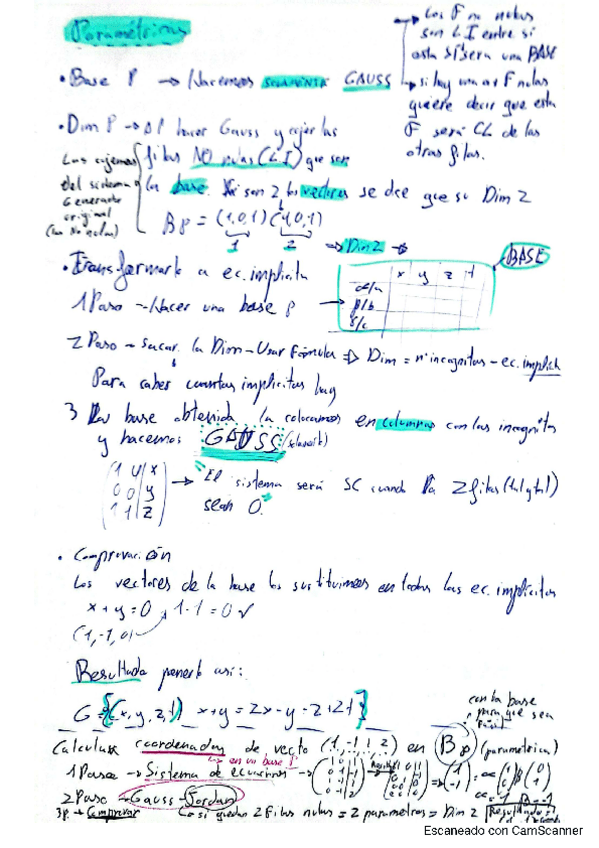 Paramétricas
Los F no nulas
son LI entre si
esta SI sera una BASE
• Base P → Hacemos SOLAMENTE GAUSS
→ si hay una o + F nulas
quiere decir que esta
F será CL de las
otras filas.
• Dim P → Al hacer Gauss y coger las
filas NO nulas (LI) que son
la base. Si son 2 los vectores se dice que su Dim 2
del sistema
Generador
original
(las No nulas)
Bp = (1,0,1) (4,0,1)
1 2 → Dim 2 →
BASE
x y z t
α/a
β/b
δ/c
• Transformarlo a ec. implicita
1 Paso → Hacer una base P →
2 Paso → Sacar la Dim → Usar Fórmula ⇒ Dim = nº incognitas - ec. implicit
Para saber cuantas implicitas hay
3 La base obtenida la colocamos en columnas con las incognitas
y hacemos GAUSS (solamente)
(1 4 | x
0 0 | y
1 1 | z)
→ "El sistema será SC cuando la 2 filas
sean 0."
• Comprovación
Los vectores de la base los sustituimos en todas las ec. implicitas
x + y = 0 → 1-1 = 0 ✓
(1,-1,0)
Resultado ponerlo asi:
G = {(x, y, z, t) x+y = 2x-y-z+2t}
con la base
para que sea
Calcular coordenadas de vecto (1,-1,1,2) en Bp (parametrica)
↳ en una base P
1 Paso → Sistema de ecuaciones →
2 Paso → Gauss - Jordan
3P → Comprovar
Ca si quedan 2 filas nulas = 2 parametros = Dim 2
Escaneado con CamScanner